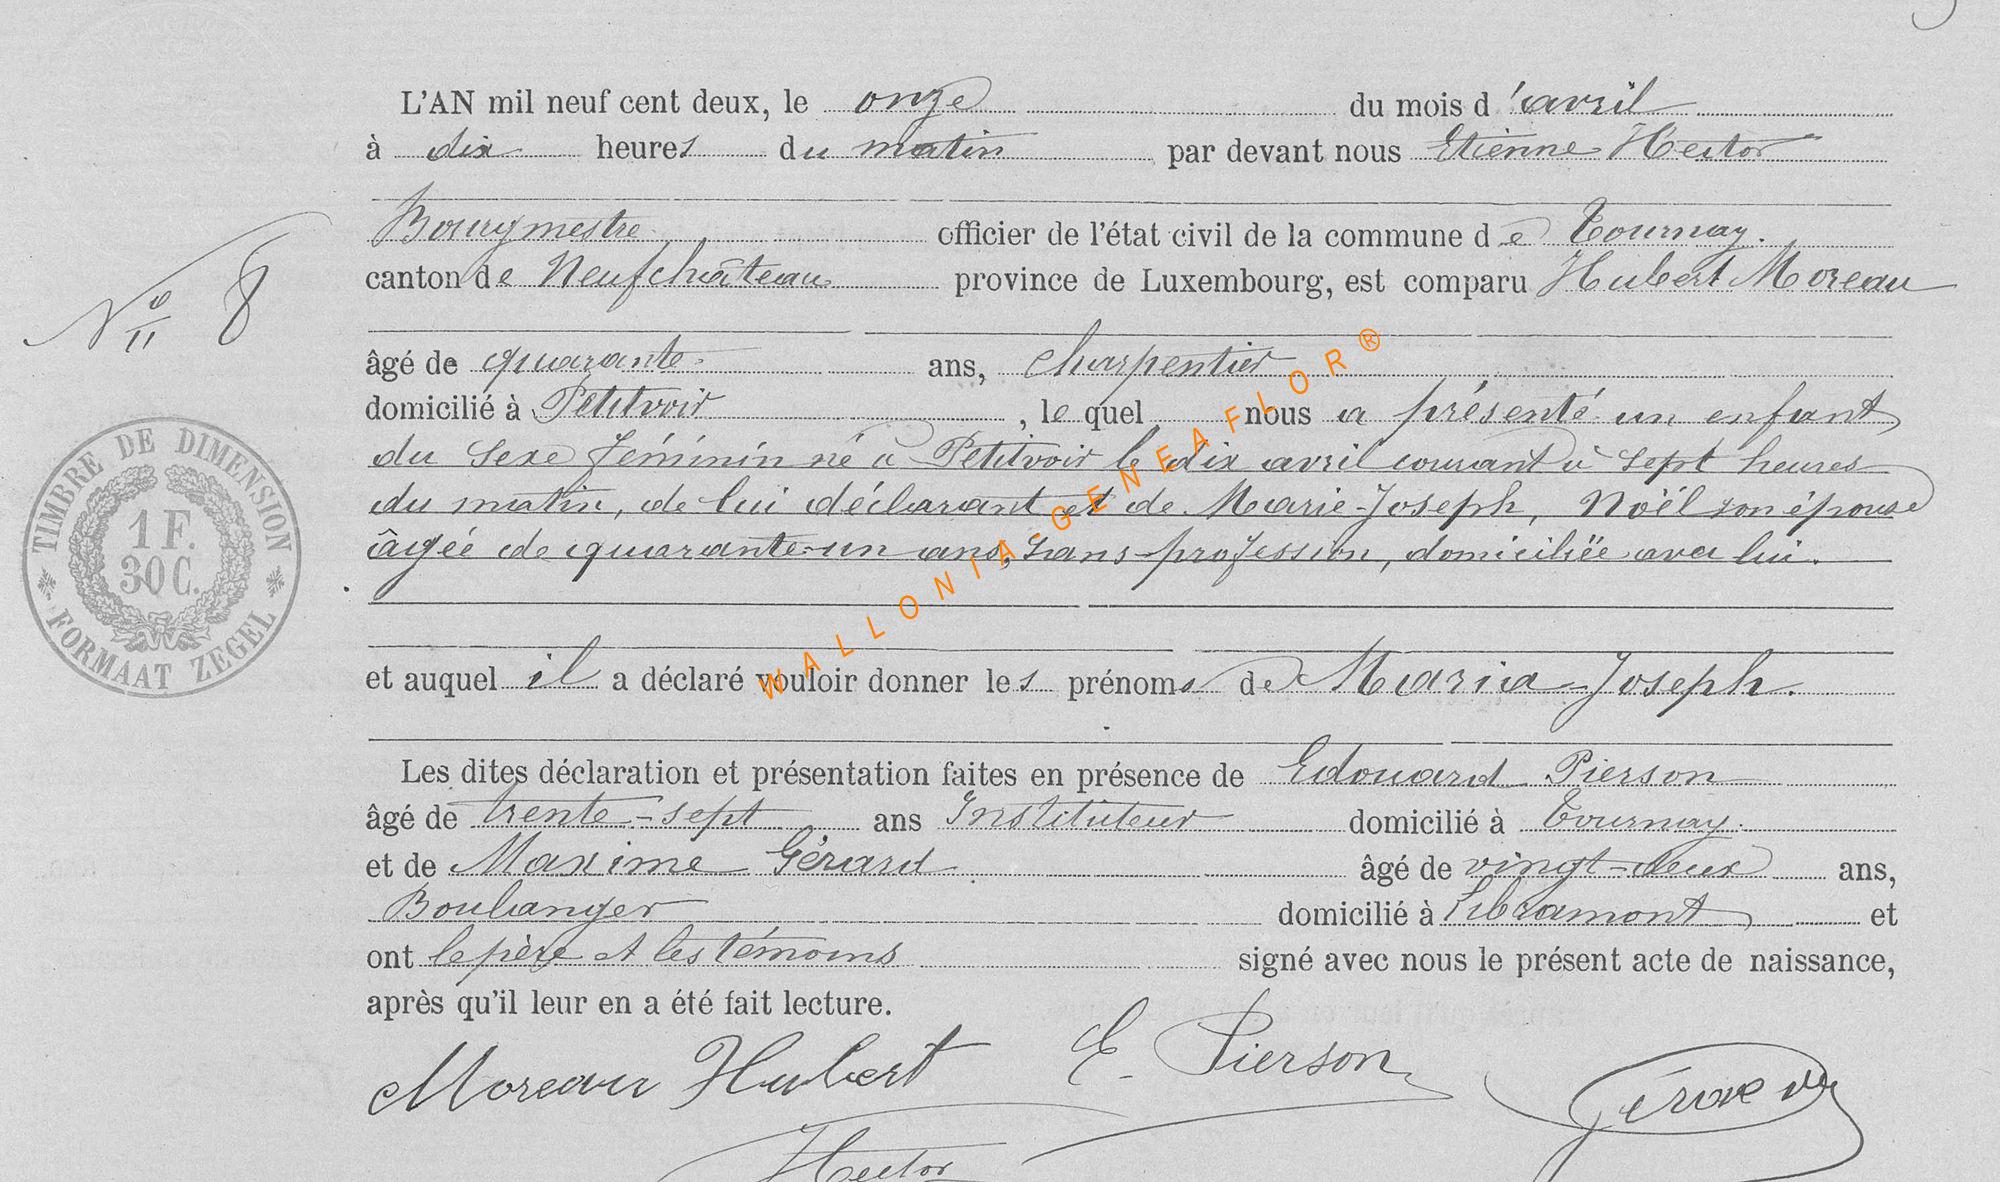 L'AN mil neuf cent deux, le onze du mois d'avril
à dix heures du matin par devant nous Etienne Hector
Bourgmestre officier de l'état civil de la commune de Tournay.
canton de Neufchâteau province de Luxembourg, est comparu Hubert Moreau
N° 8
âgé de quarante ans, charpentier
domicilié à Petitvoir, lequel nous a présenté un enfant
du sexe féminin né à Petitvoir le dix avril courant à sept heures
du matin, de lui déclarant et de Marie-Joseph, Noël son épouse
âgée de quarante-un ans, sans-profession, domiciliée avec lui.
TIMBRE DE DIMENSION
1 F.
30 C.
FORMAAT ZEGEL
et auquel il a déclaré vouloir donner les prénoms de Maria-Joseph.
Les dites déclaration et présentation faites en présence de Edouard Pierson
âgé de trente-sept ans Instituteur domicilié à Tournay.
et de Maxime Gérard âgé de vingt-deux ans,
Boulanger domicilié à Libramont et
ont le père et les témoins signé avec nous le présent acte de naissance,
après qu'il leur en a été fait lecture.
Moreau Hubert E. Pierson
Hector
WALLONIA-GENEAFLOR®